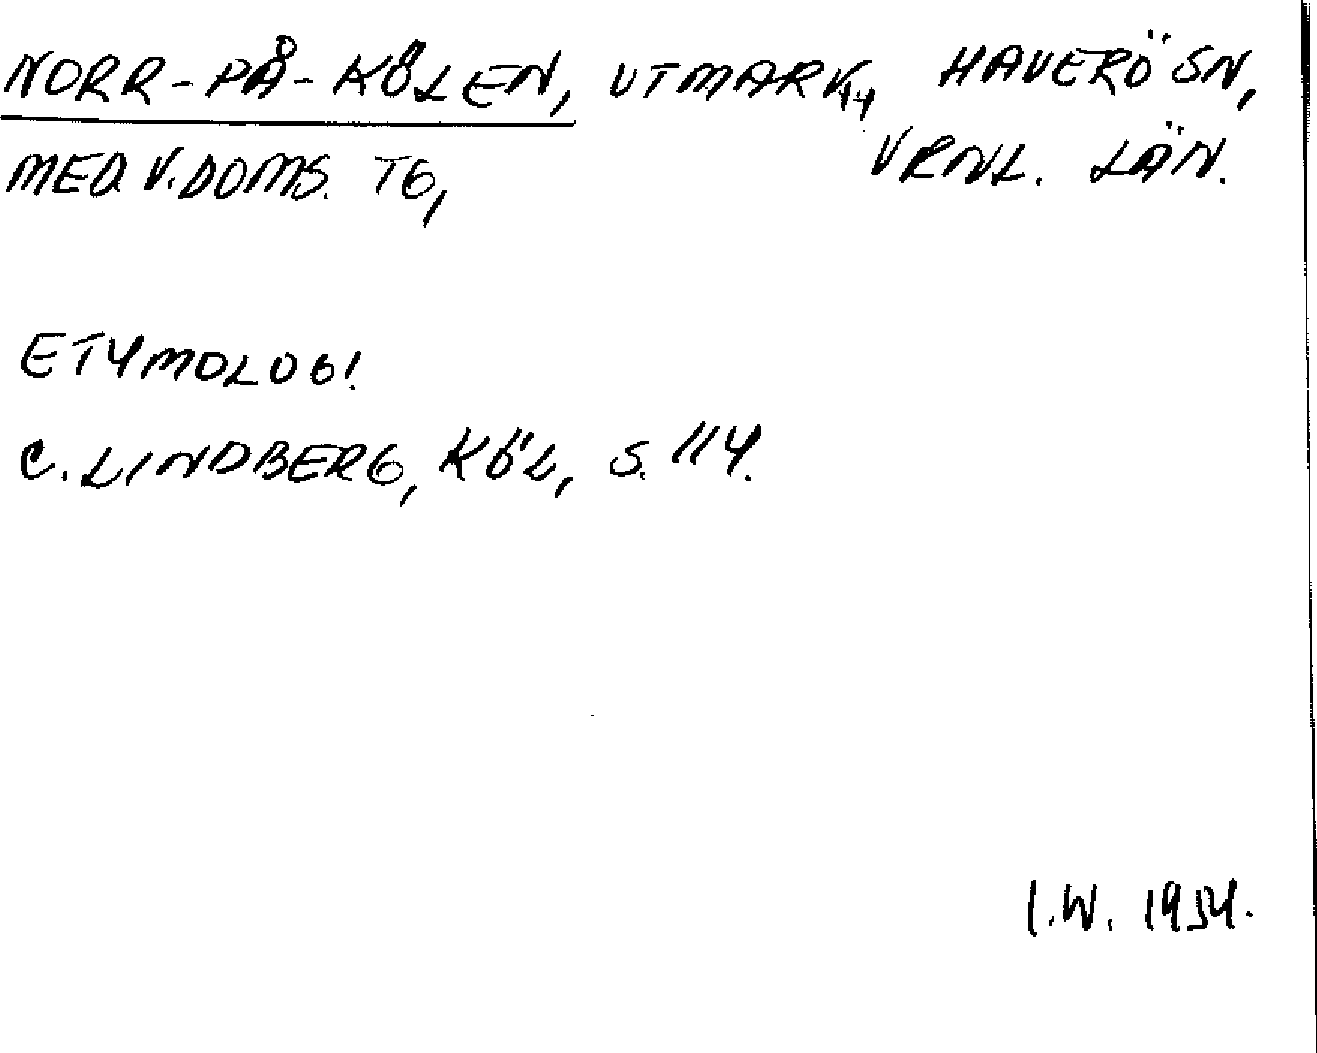 NORR-PÅ-KÖLEN, UTMARK, HAVERÖ SN,
MED. V. DOMS. TG, VRNL. LÄN.
ETYMOLOGI
C. LINDBERG, KÖL, S. 114.
I.W. 1954.